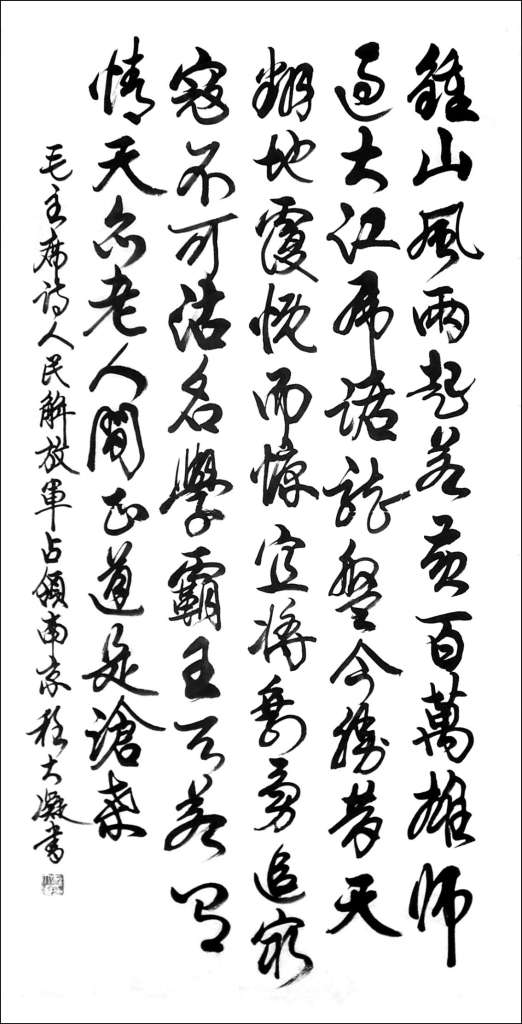 鍾山風雨起蒼黃百萬雄師
過大江虎踞龍盤今勝昔天
翻地覆慨而慷宜將剩勇追窮
寇不可沽名學霸王天若有
情天亦老人間正道是滄桑
毛主席詩人民解放軍占領南京程大凝書